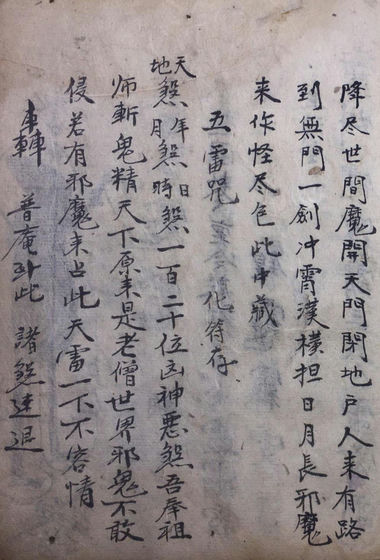 降尽世間魔開天門閉地户人来有路
到無門一劍冲霄漢橫担日月長邪魔
来作怪尽此中藏
五雷咒 化符存
天地煞年月煞日時煞一百二十位凶神惡煞吾奉祖
师斬鬼精天下原来是老僧世界邪鬼不敢
侵若有邪魔来占此天雷一下不容情
普庵到此 諸煞速退